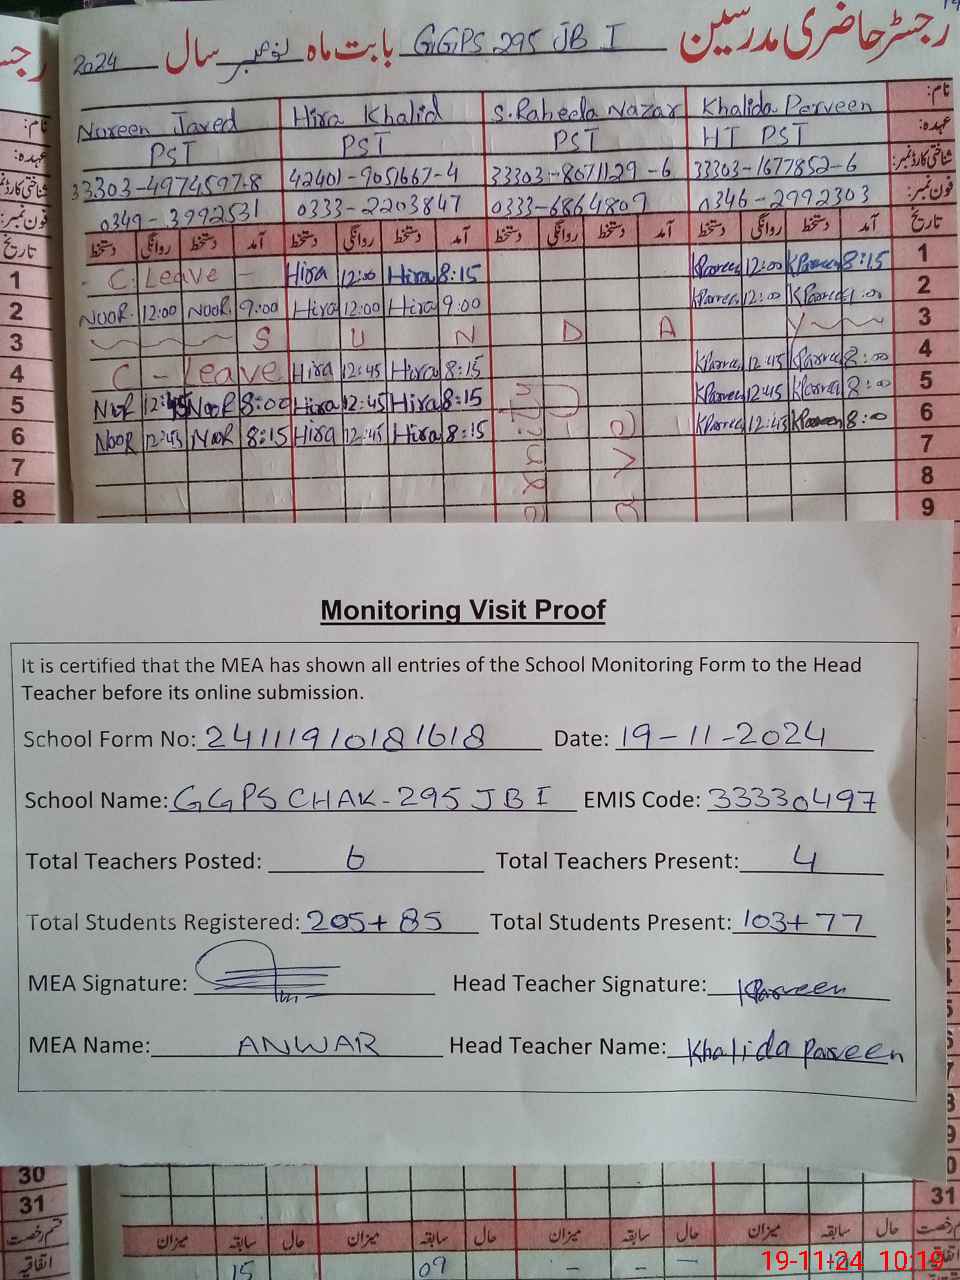 رجسٹر حاضری مدرسین GGPS 295 JB I بابت ماہ نومبر سال 2024
نام: Khalida Perveen S.Raheela Nazar Hira Khalid Noreen Javed
عہدہ: HT PST PST PST PST
شناختی کارڈ نمبر: 33303-1677852-6 33303-8071129-6 42401-9051667-4 33303-4974597-8
فون نمبر: 0346-2992303 0333-6864809 0333-2203847 0349-3992531
تاریخ آمد دستخط روانگی دستخط آمد دستخط روانگی دستخط آمد دستخط روانگی دستخط آمد دستخط روانگی دستخط
1 C. Leave - Hira 12:00 Hira 8:15 KParveen 12:00 KParveen 8:15 1
2 NOOR 12:00 NOOR 9:00 Hira 12:00 Hira 9:00 KParveen 12:00 KParveen :00 2
3 S U N D A Y 3
4 C - Leave Hira 12:45 Hira 8:15 KParveen 12:45 KParveen 8:00 4
5 NOOR 12:45 NOOR 8:00 Hira 12:45 Hira 8:15 KParveen 12:45 KParveen 8:00 5
6 NOOR 12:45 NOOR 8:15 Hira 12:45 Hira 8:15 KParveen 12:45 KParveen 8:0 6
7 7
8 8
9
Monitoring Visit Proof
It is certified that the MEA has shown all entries of the School Monitoring Form to the Head
Teacher before its online submission.
School Form No: 24111910181618 Date: 19-11-2024
School Name: GGPS CHAK-295 JB I EMIS Code: 33330497
Total Teachers Posted: 6 Total Teachers Present: 4
Total Students Registered: 205+85 Total Students Present: 103+77
MEA Signature: Head Teacher Signature: KParveen
MEA Name: ANWAR Head Teacher Name: Khalida Parveen
30
31 31
قسم رخصت حال سابقہ میزان حال سابقہ میزان حال سابقہ میزان حال سابقہ میزان قسم رخصت
اتفاقیہ 15 09 - - - اتفاقیہ
19-11-24 10:19